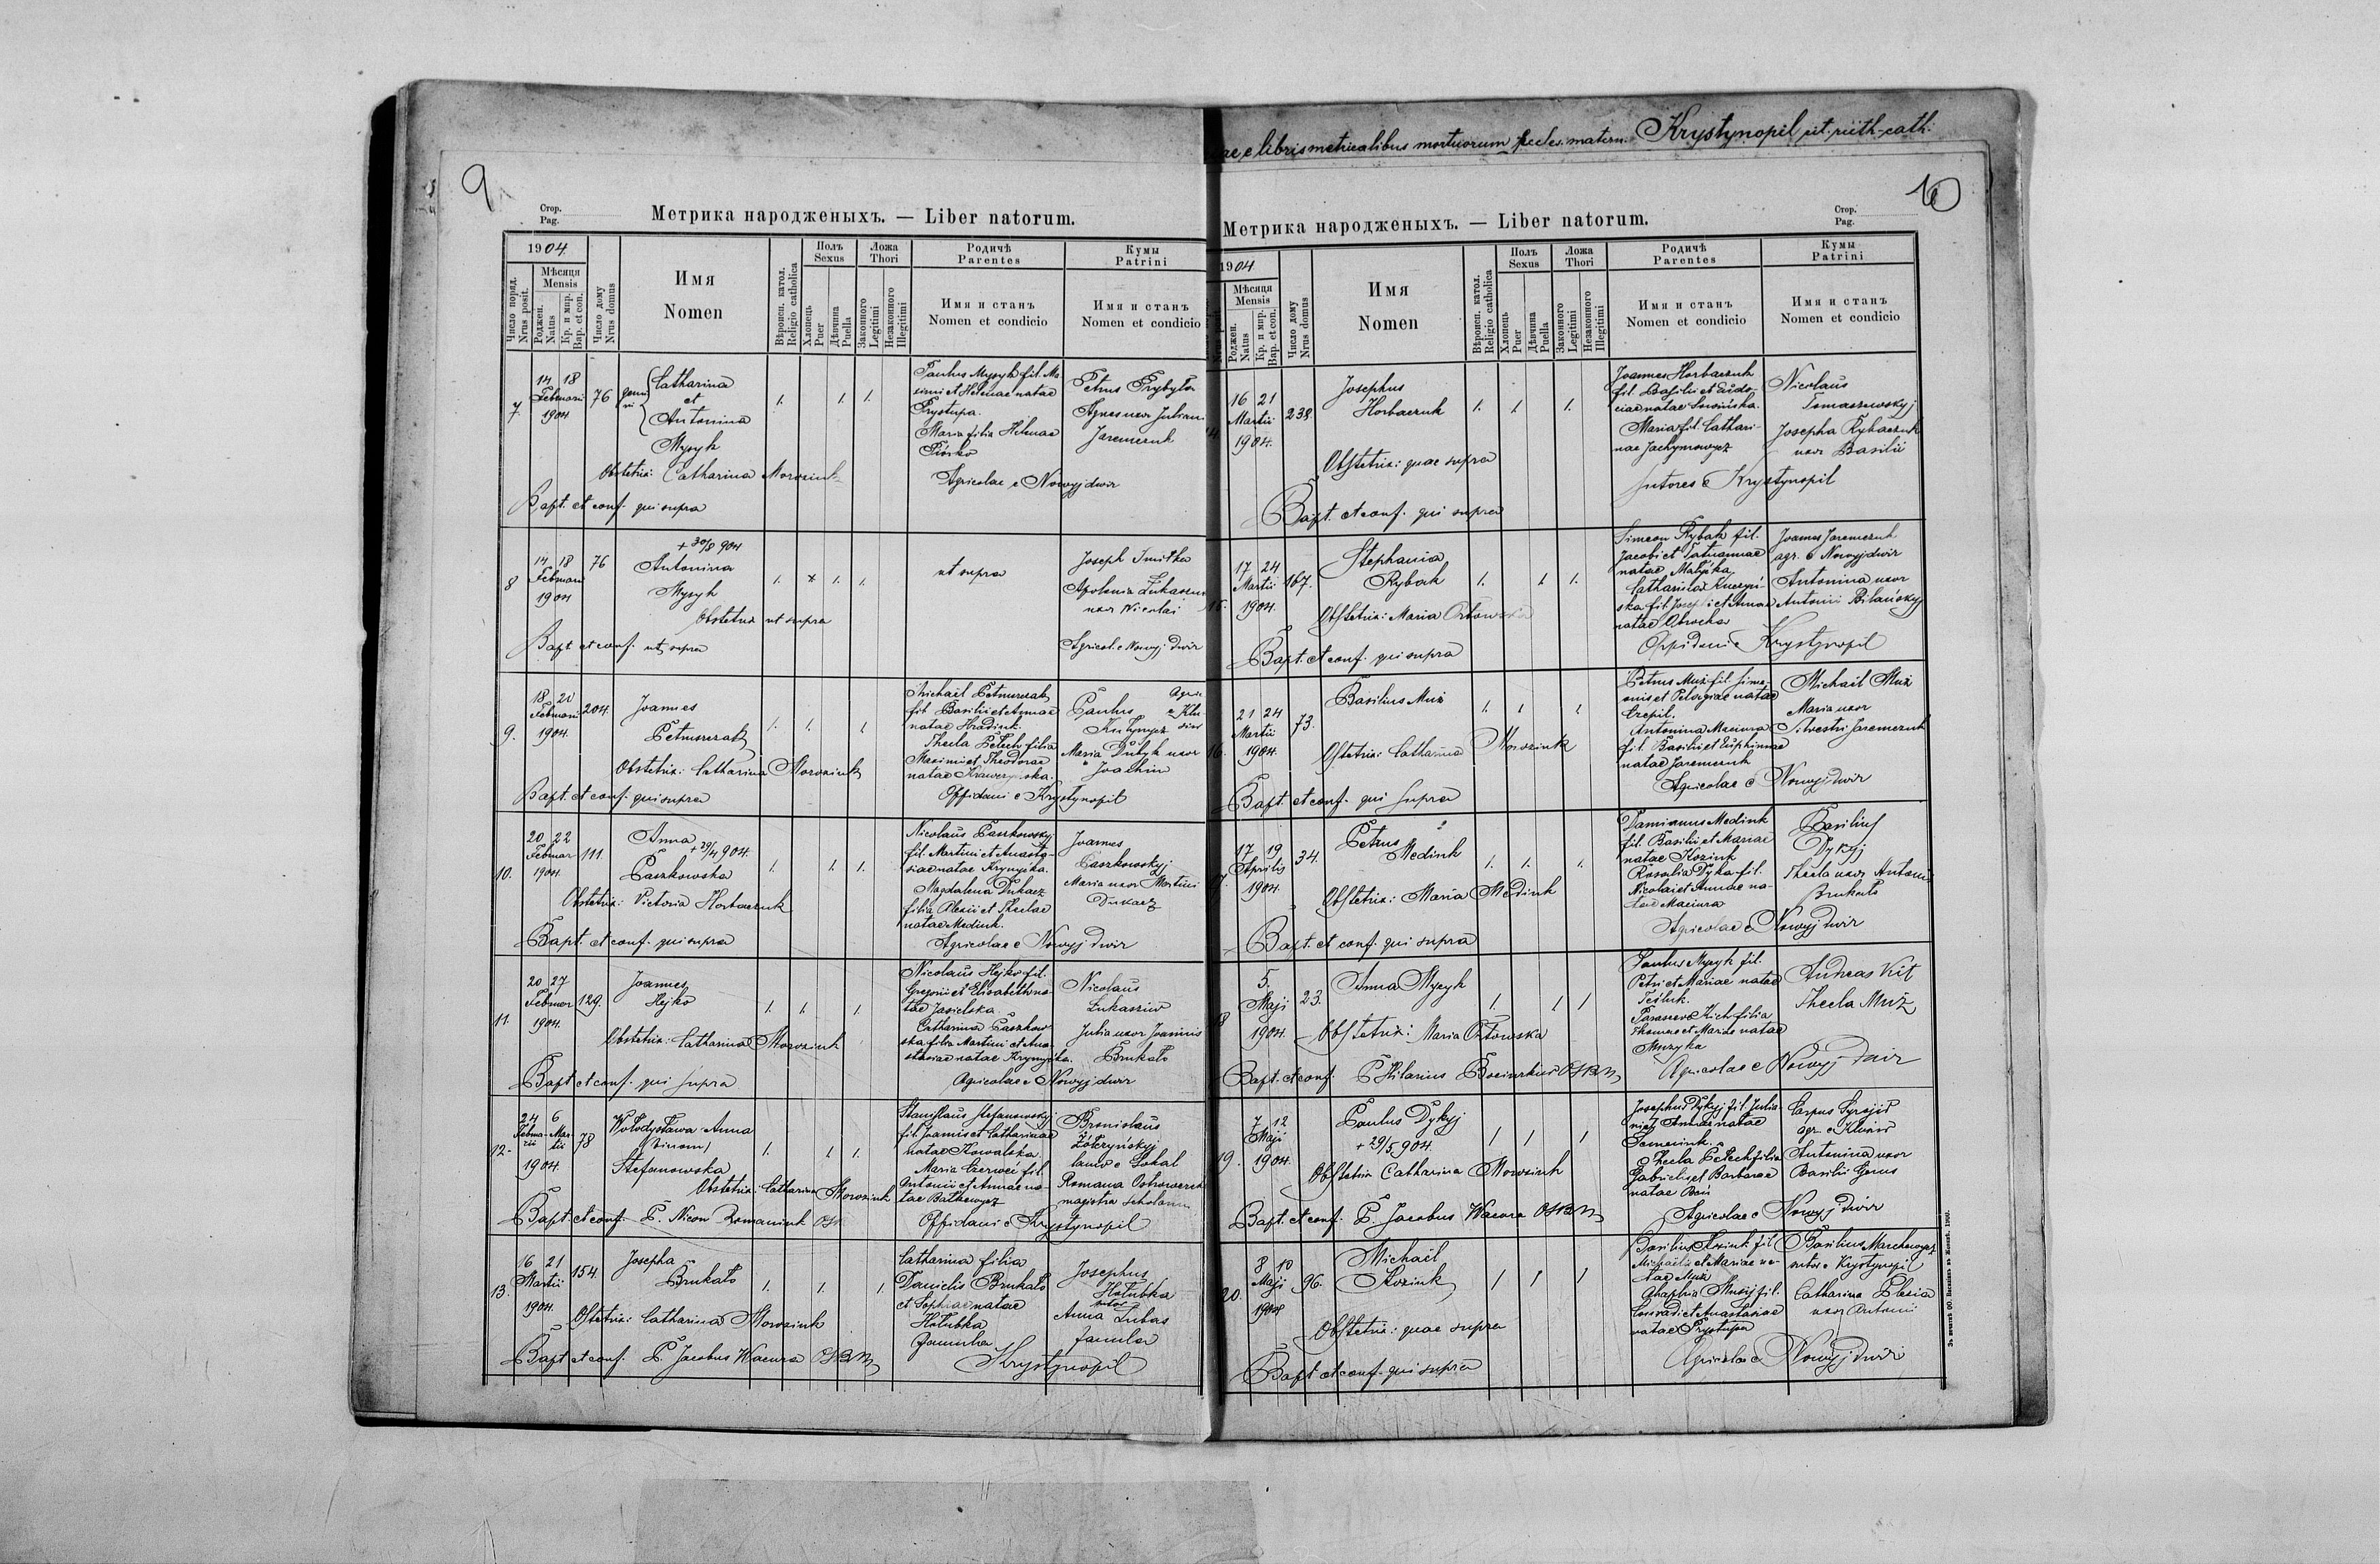 9
Стор.
Pag.
Метрика народженыхъ. — Liber natorum.
1904.
Число поряд.
Nrus posit.
Мѣсяця
Mensis
Роджен.
Natus
Кр. и мир.
Bap. et con.
Число дому
Nrus domus
Имя
Nomen
Вѣроисп. катол.
Religio catholica
Полъ
Sexus
Хлопець
Puer
Дѣвчина
Puella
Ложа
Thori
Законного
Legitimi
Незаконного
Illegitimi
Родичѣ
Parentes
Имя и станъ
Nomen et condicio
Кумы
Patrini
Имя и станъ
Nomen et condicio
7.
14 18
Februarii
1904
76
Catharina
et
Antonina
Myzyk
1. 1. 1.
Paulus Myzyk fil. Ma
ximi et Helenae natae
Prystupa.
Maria filia Helenae
Petrus Prybyła
Agnes uxor Juliani
Jaremczuk
Obstetrix: Catharina Moroziuk
Agricolae e Nowyj dwir
Bapt. et conf. qui supra
8
14 18
Februarii
1904
76
+ 30/8 904
Antonina
Myzyk
1. 1. 1.
ut supra
Joseph
Apolonia Łukaszuk
uxor Nicolai
Obstetrix ut supra
Bapt et conf. ut supra
Agricol. e Nowyj dwir
9.
18 20
Februarii
1904.
204.
Joannes
Petruszczak
1. 1. 1
Michael Petruszczak
fil. Basilii et Annae
natae Hradiuk.
Thecla Petech filia
Maximi et Theodorae
Paulus
Maria Dubyk uxor
Joachim
Obstetrix: Catharina Moroziuk
Bapt. et conf. qui supra
Oppidani e Krystynopil
10.
20 22
Februar
1904.
111.
Anna
+ 29/4 904.
Paszkowska
1. 1. 1.
Nicolaus Paszkowskyj
fil. Martini et Anasta-
siae natae Krynycka.
Magdalena Dukacz
filia Alexii et Theclae
natae Mediuk.
Joannes
Paszkowskyj
Maria uxor Martini
Dukacz
Obstetrix: Victoria Horbaczuk
Bapt. et conf. qui supra
Agricolae e Nowyj dwir
11.
20 27
Februar
1904.
129.
Joannes
Hejko
1. 1. 1.
Nicolaus Hejko fil.
Gregorii et Elisabeth na-
tae Jasielska
Catharina Paszkow-
ska filia Martini et Ana-
stasiae natae Krynycka.
Nicolaus
Łukasziw
Julia uxor Joannis
Brukało
Obstetrix: Catharina Moroziuk
Bapt et conf. qui supra
Agricolae e Nowyj dwir
12.
24 6
Februa- Mar-
rii tii
1904.
78
Wołodysława Anna
(binom)
Stefanowska
1. 1. 1.
Stanislaus Stefanowskyj
fil. Joannis et Catharinae
natae Kowalska.
Maria Czerweć fil.
Antonii et Annae na-
tae Batkewycz
Bronislaus
e Sokal
Romana
magistra scholarum
Obstetrix: Catharina Moroziuk
Bapt. et conf. P. Nicon Romaniuk
Oppidani e Krystynopil
13.
16 21
Martii
1904.
154.
Josepha
Brukało
1. 1. 1.
Catharina filia
Danielis Brukało
et Sophiae natae
Hołubka
famula
Josephus
Hołubka
sutor
Anna Łubas
famula
Obstetrix: Catharina Moroziuk
Bapt et conf. P. Jacobus Wacura OSBM
Krystynopil
e libris metricalibus mortuorum eccles. matern. Krystynopil rit. ruth.-cath.
10
Стор.
Pag.
Метрика народженыхъ. — Liber natorum.
1904
Мѣсяця
Mensis
Роджен.
Natus
Кр. и мир.
Bap. et con.
Число дому
Nrus domus
Имя
Nomen
Вѣроисп. катол.
Religio catholica
Полъ
Sexus
Хлопець
Puer
Дѣвчина
Puella
Ложа
Thori
Законного
Legitimi
Незаконного
Illegitimi
Родичѣ
Parentes
Имя и станъ
Nomen et condicio
Кумы
Patrini
Имя и станъ
Nomen et condicio
16 21
Martii
1904.
238.
Josephus
Horbaczuk
1. 1. 1.
Joannes Horbaczuk
fil. Basilii et Eudo-
ciae natae
Maria fil. Cathari-
nae Jachymowycz
Nicolaus
Tomaszewskyj
Josepha Rybaczuk
uxor Basilii
Obstetrix: quae supra
sutores e Krystynopil
Bapt. et conf. qui supra
17 24
Martii
1904.
167.
Stephania
Rybak
1. 1. 1.
Simeon Rybak fil.
Jacobi et Tatiannae
natae
Catharina
ska fil. Josephi et Annae
natae Obrocka
Joannes Jaremczuk
agr. e Nowyj dwir
Antonina uxor
Antonii Bilańskyj
Obstetrix: Maria Orłowska
Oppidani e Krystynopil
Bapt. et conf. qui supra
16.
21 24
Martii
1904.
73.
Basilius Muż
1. 1. 1
Petrus Muż fil. Sime-
onis et Pelagiae natae
Czepil.
Antonina Maciura
fil. Basilii et Euphimiae
natae Jaremczuk
Michail Muż
Maria uxor
Silvestri Jaremczuk
Obstetrix: Catharina Moroziuk
Agricolae e Nowyj dwir
Bapt. et conf. qui supra
17 19
Aprilis
1904.
34.
Petrus
Mediuk
1. 1. 1.
Damianus Mediuk
fil. Basilii et Mariae
natae Koziuk
Rosalia Dyka fil.
Nicolai et Annae na-
tae Maciura
Basilius
Dykyj
Thecla uxor Antonii
Brukało
Obstetrix: Maria Mediuk
Agricolae e Nowyj dwir
Bapt. et conf. qui supra
18
5.
Maji
1904.
23.
Anna Myzyk
1. 1 1
Paulus Myzyk fil.
Petri et Mariae natae
Parascev Kich filia
Thomae et Mariae natae
Muzyka
Andreas Kit
Thecla Muż
Obstetrix: Maria Orłowska
Bapt. et conf. P. Hilarius OSBM
Agricolae e Nowyj dwir
19.
7 12
Maji
1904.
Paulus Dykyj
+ 29/5 904.
1 1 1
Josephus Dykyj fil. Julia-
ni et Annae natae
Semeniuk.
Thecla Petech filia
Gabrielis et Barbarae
natae
Carpus
agr. e
Antonina uxor
Basilii Gerus
Obstetrix Catharina Moroziuk
Bapt. et conf. P. Jacobus Wacura OSBM
Agricolae e Nowyj dwir
20.
8 10
Maji
1904
96.
Michael
Koziuk
1 1 1
Basilius Koziuk fil.
Michaelis et Mariae na-
tae Muż
Ahaphia fil.
Conradi et Anastasiae
natae Prystupa
Basilius Marchewycz
sutor e Krystynopil
Catharina Plesia
uxor Antonii
Obstetrix: quae supra
Agricolae e Nowyj dwir
Bapt et conf. qui supra